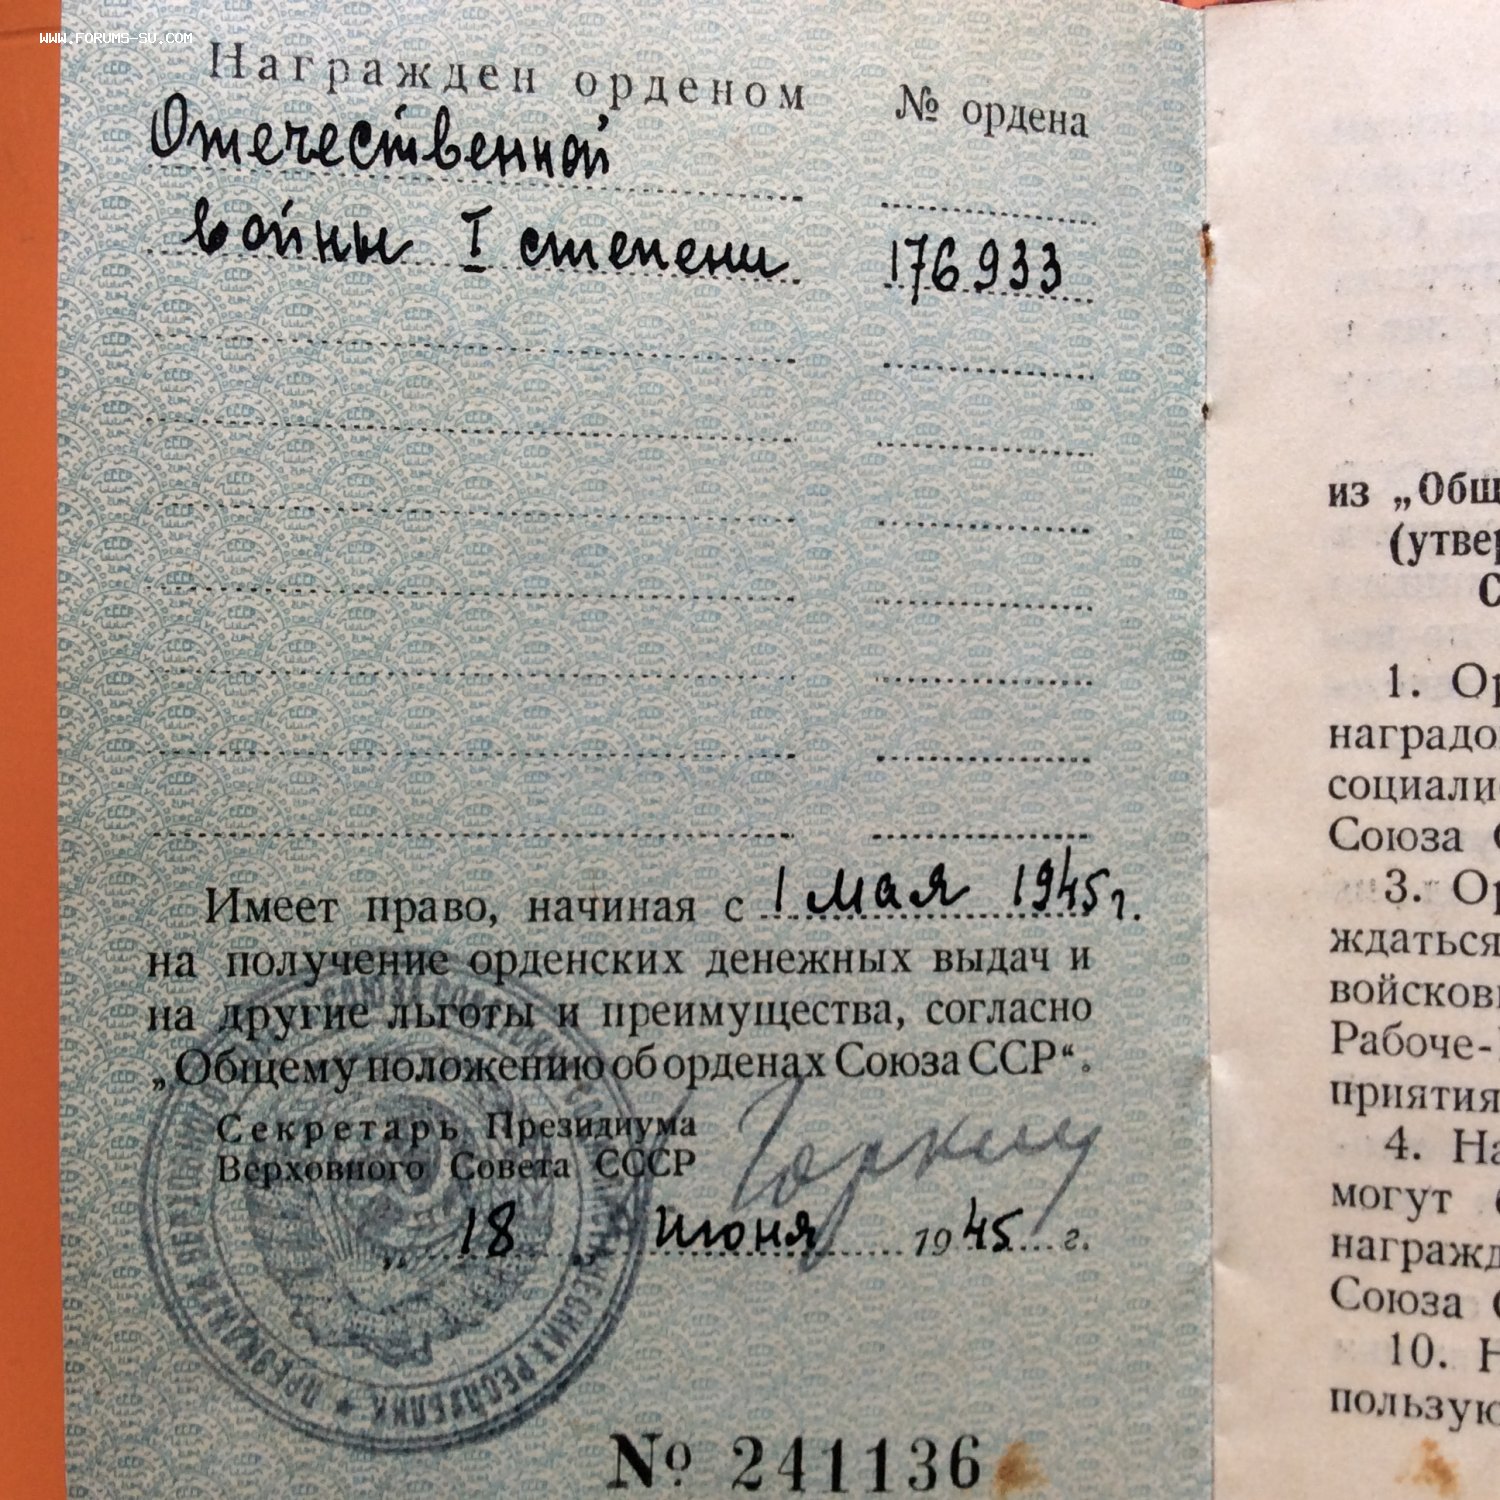 www.forums-su.com
Награжден орденом
№ ордена
Отечественной
войны I степени
176933
Имеет право, начиная с 1 мая 1945 г.
на получение орденских денежных выдач и
на другие льготы и преимущества, согласно
„Общему положению об орденах Союза ССР“.
Секретарь Президиума
Верховного Совета СССР
Горкин
„18 “ Июня 1945 г.
№ 241136
из „Общ
(утвер
С
1. Ор
наградо
социали
Союза С
3. Ор
ждаться
войсков
Рабоче-
приятия
4. На
могут
награжд
Союза С
10. Н
пользую